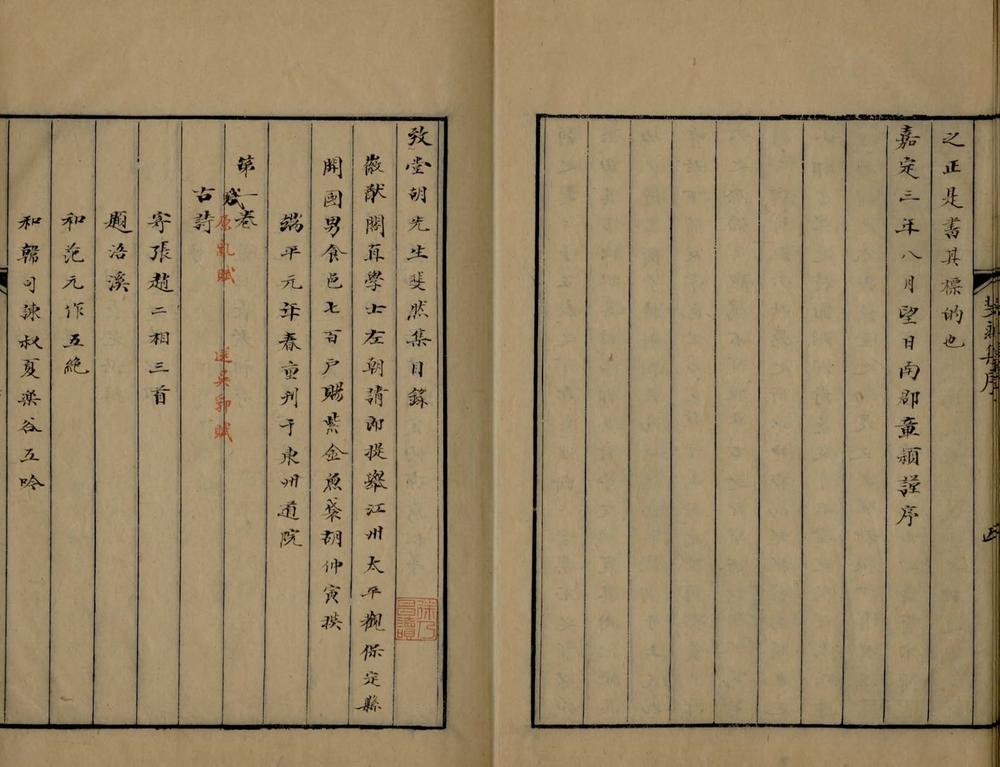 之正是書其標的也
嘉定三年八月望日南郡章穎謹序
斐然集序
致堂胡先生斐然集目錄
徽猷閣直學士左朝請郎提舉江州太平觀保定縣
開國男食邑七百戶賜紫金魚袋胡仲寅撰
端平元年春重刊于東州道院
第一卷
賦
原亂賦 送吳郛賦
古詩
寄張趙二相三首
題浯溪
和范元作五絕
和韓司諫叔夏樂谷五吟